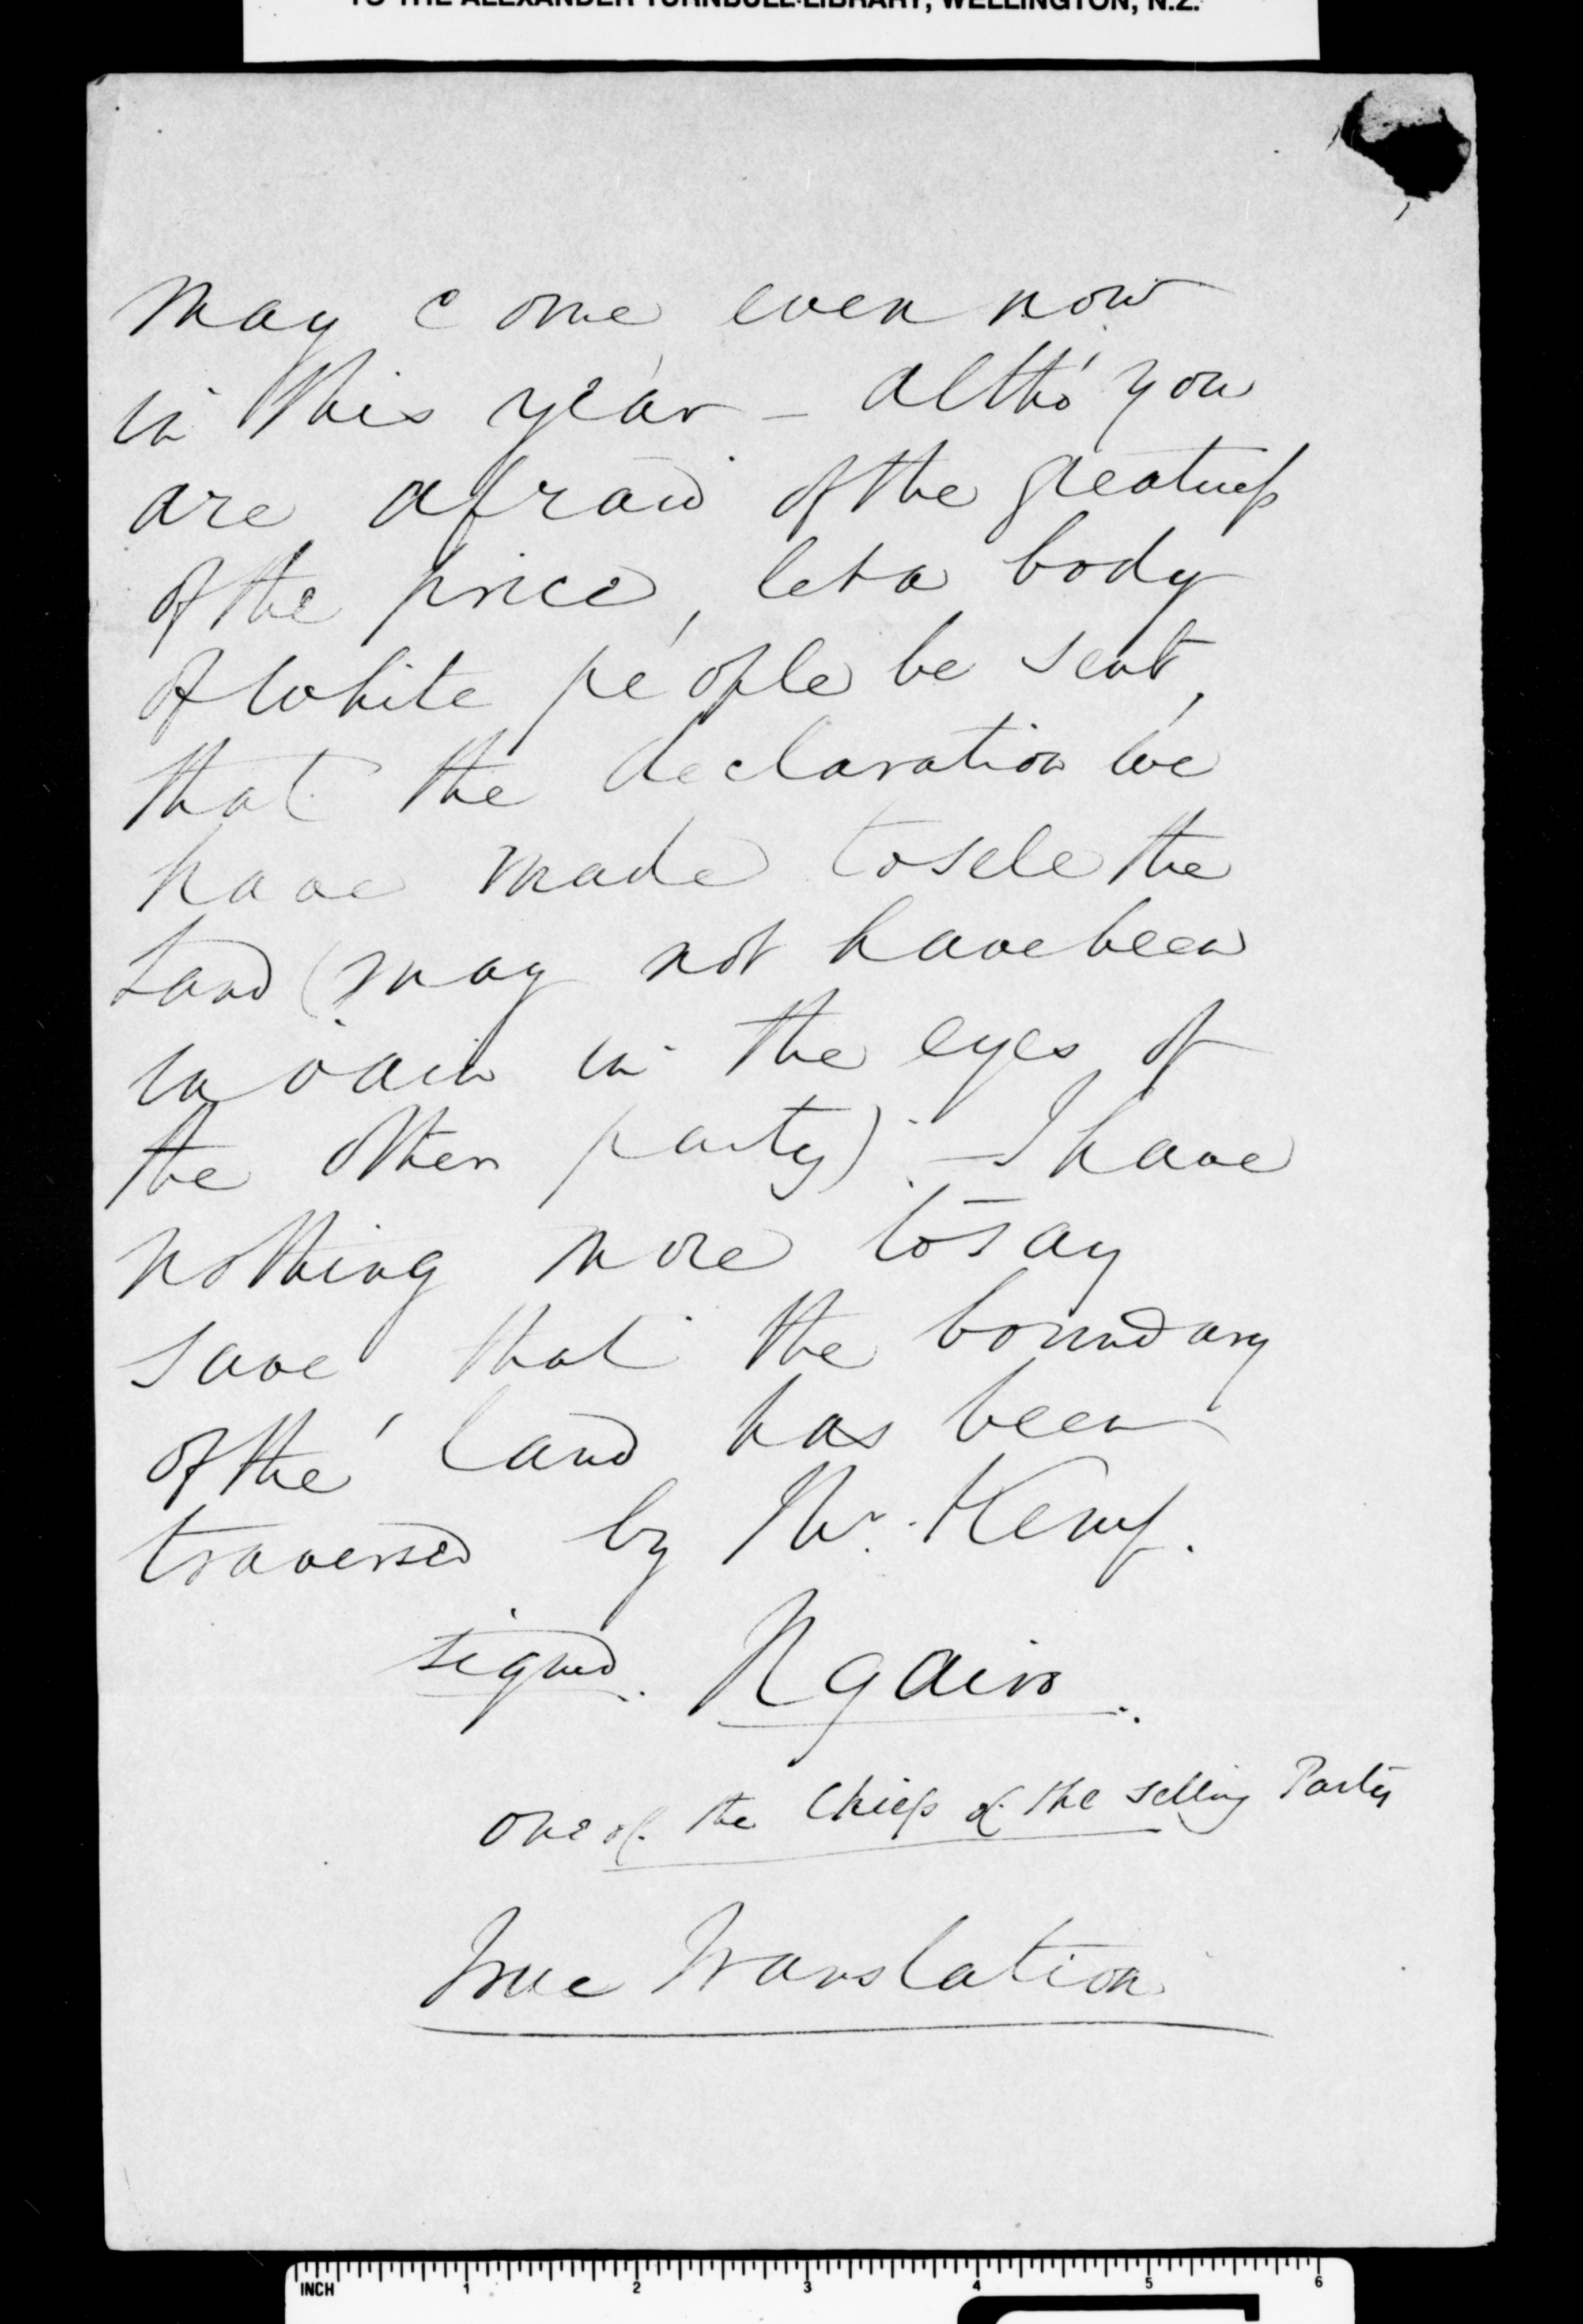 TO THE ALEXANDER TURNBULL LIBRARY, WELLINGTON, N.Z.
may come even now
in this year – altho' you
are afraid of the greatness
of the price, let a body
of white people be sent,
that the declaration we
have made to sell the
Land (may not have been
in vain in the eyes of
the other party). – I have
nothing more to say
save that the boundary
of the land has been
traversed by Mr. Kemp.
signed. Ngairo.
one of the Chiefs of the selling Party
True Translation
INCH 1 2 3 4 5 6